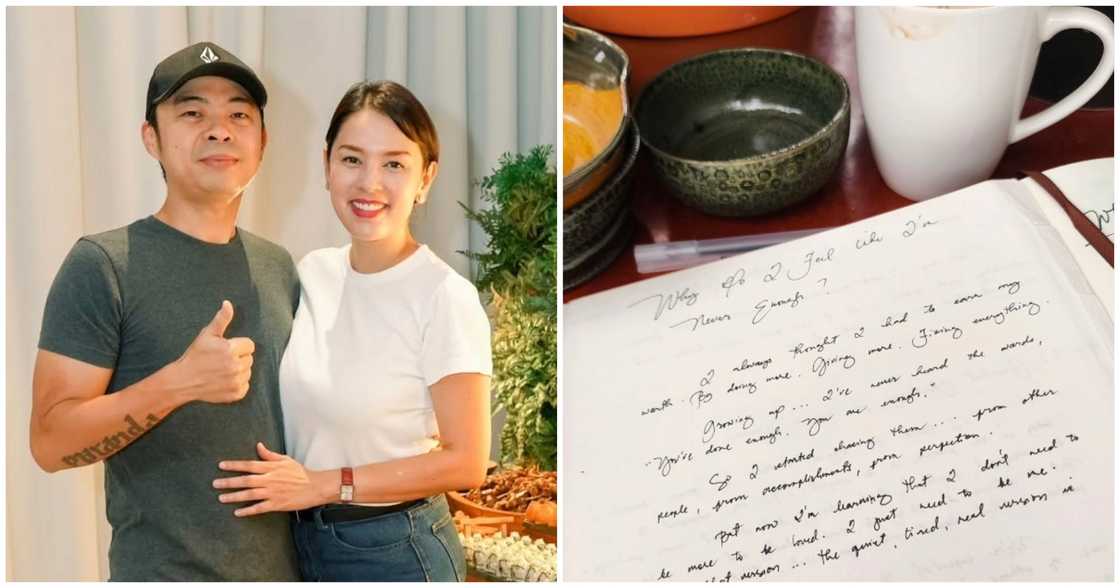 Why Do I Feel Like I'm
Never Enough?
I always thought I had to earn my
worth. By doing more. Giving more. Fixing everything.
Growing up... I've never heard the words,
"You've done enough. You are enough."
So I started chasing them... from other
people, from accomplishments, from perfection.
But now I'm learning that I don't need to
be more to be loved. I just need to be me.
that version... the quiet, tired, real version is